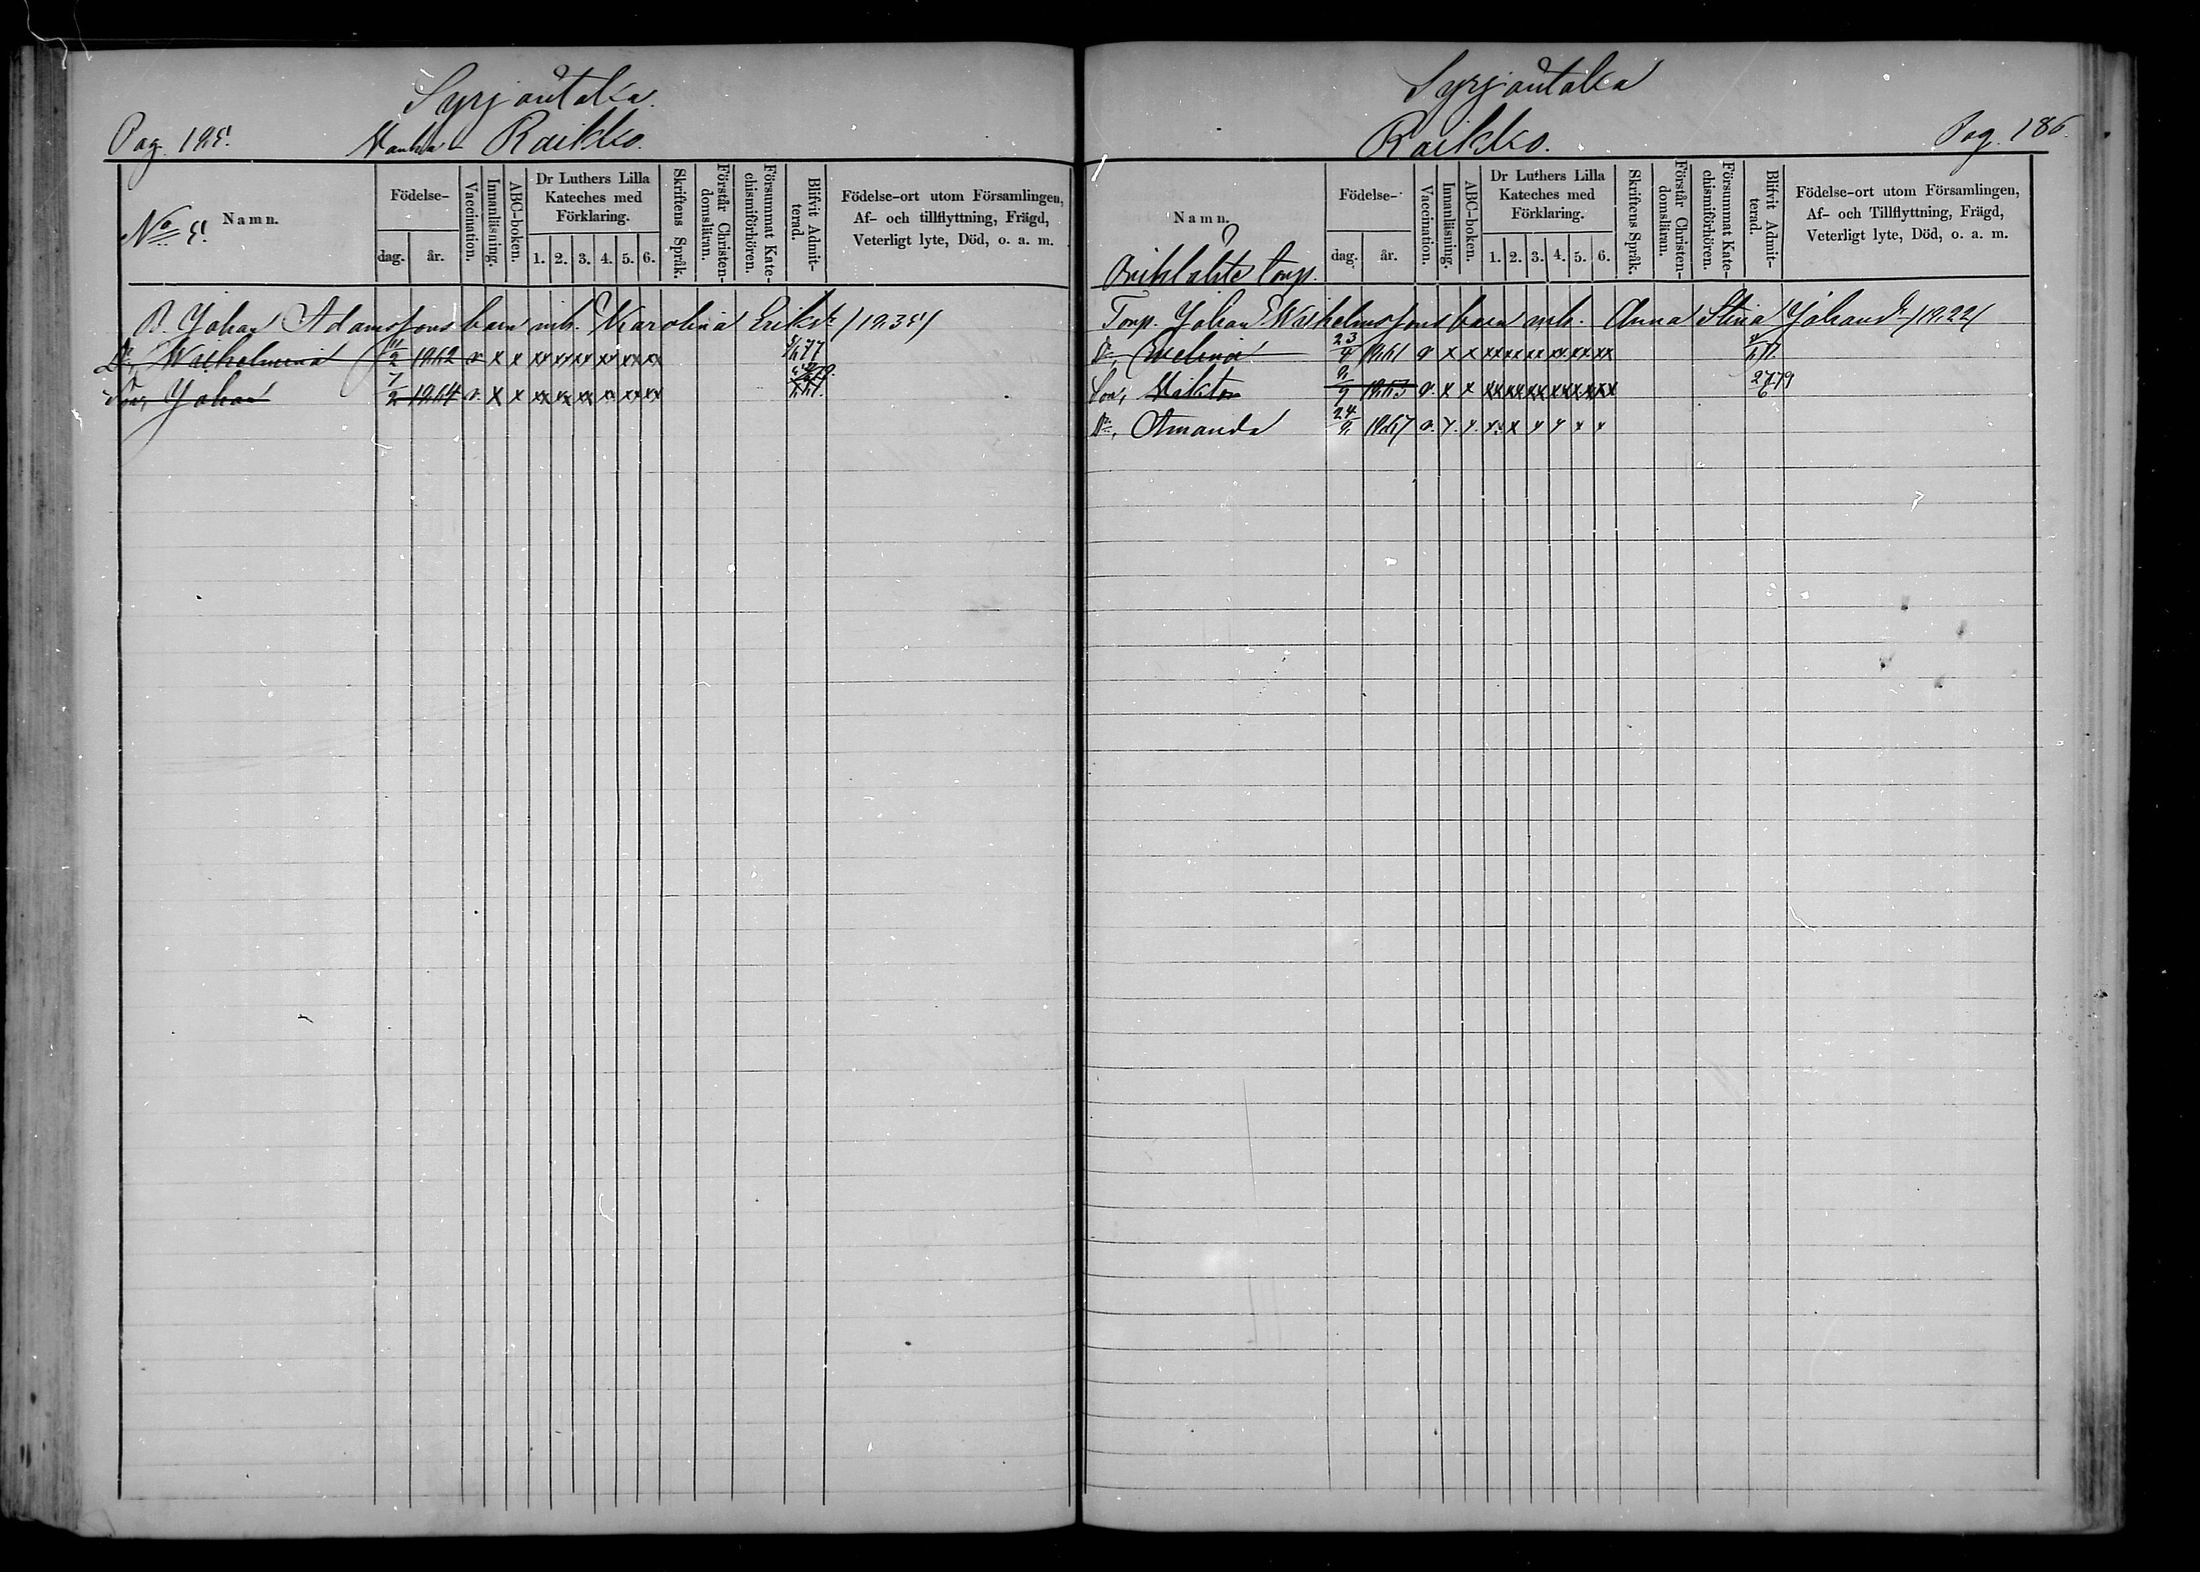 Syrjäntaka.
Pag. 185. Vanha- Raikko.
No 5. Namn.
Födelse-
dag. år.
Vaccination.
Innanläsning.
ABC-boken.
Dr Luthers Lilla Kateches med Förklaring.
1. 2. 3. 4. 5. 6.
Skriftens Språk.
Förstår Christendomsläran.
Försummat Katechismiförhören.
Blifvit Admitterad.
Födelse-ort utom Församlingen,
Af- och tillflyttning, Frägd,
Veterligt lyte, Död, o. a. m.
B. Johan Adamssons barn mh. Karolina Eriksdr /1835/
Dr, Wilhelmina 11/2 1862 v. x x xx xx xx xx xx xx 77
Son, Johan 7/2 1864 v. x x xx xx xx xx xx xx
Syrjäntaka
Raikko. Pag. 186.
Namn.
Födelse-
dag. år.
Vaccination.
Innanläsning.
ABC-boken.
Dr Luthers Lilla Kateches med Förklaring.
1. 2. 3. 4. 5. 6.
Skriftens Språk.
Förstår Christendomsläran.
Försummat Katechismiförhören.
Blifvit Admitterad.
Födelse-ort utom Församlingen,
Af- och Tillflyttning, Frägd,
Veterligt lyte, Död, o. a. m.
torp.
Torp. Johan Wilhelmssons barn mh. Anna Stina Johansdr /1822/
Dr, Evelina 23/4 1861 v x x xx xx xx xx xx xx
Son, Viktor 1863 v. x x xx xx xx xx xx xx 27/6 79
Dr, Amanda 24/8 1867 v. x. x. x. x x x x x